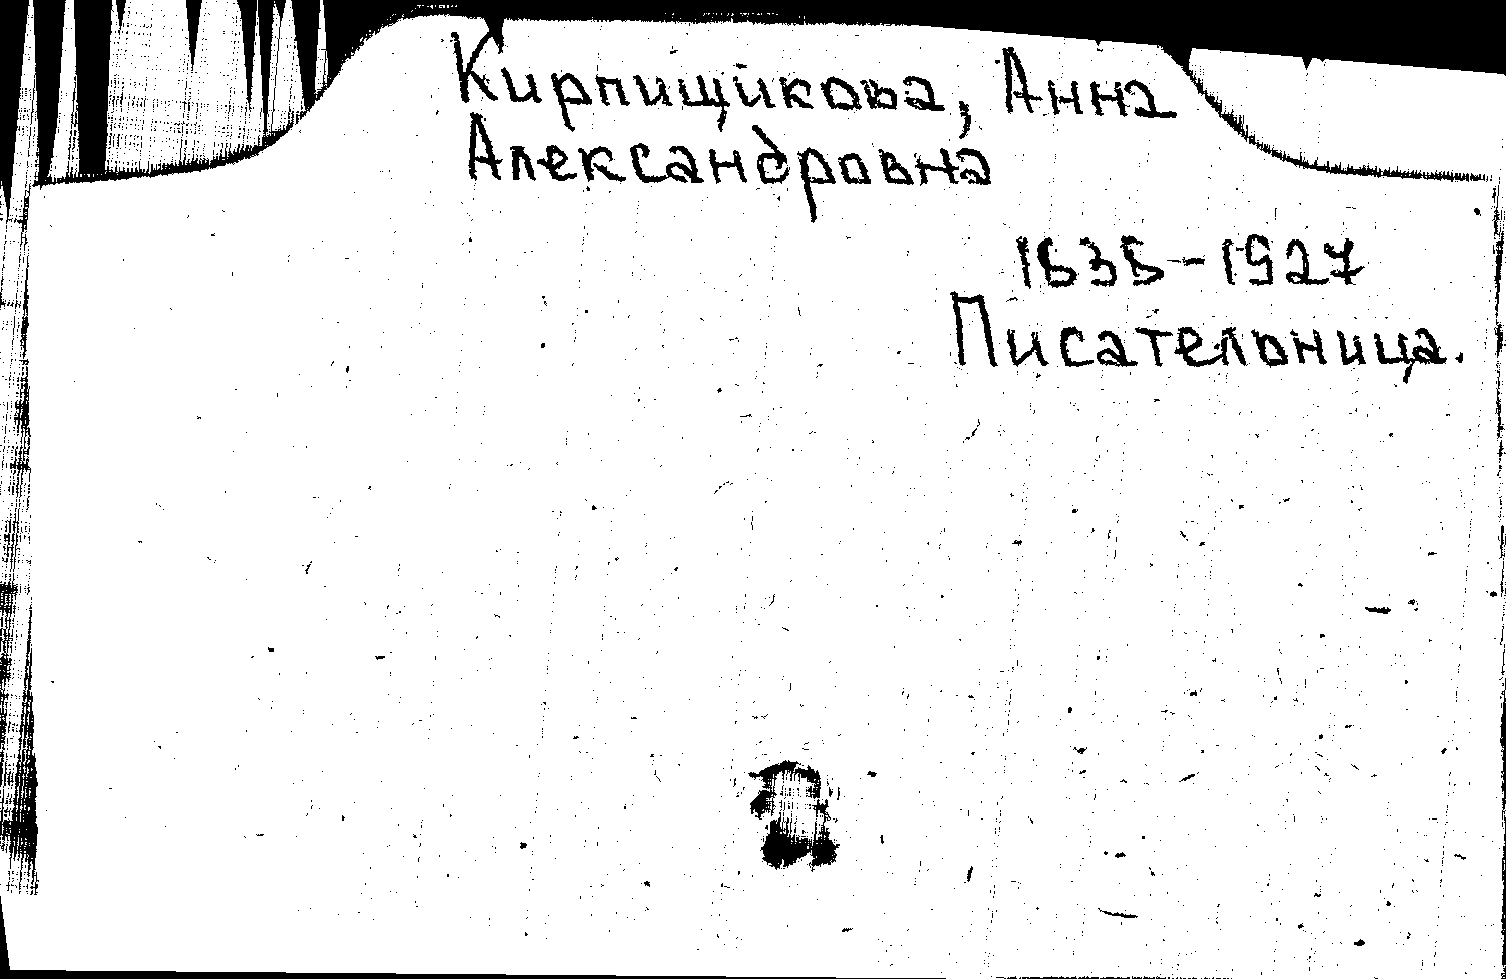 Кирпищикова, Анна
Александровна
1838-1927
Писательница.